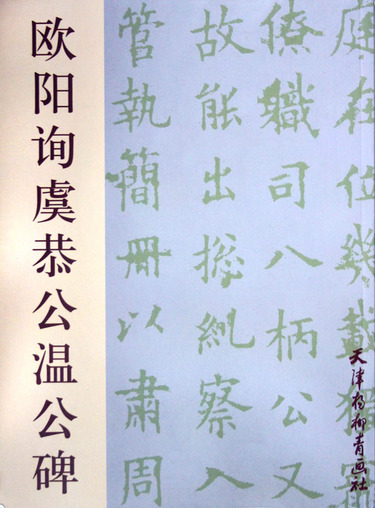 欧阳询虞恭公温公碑
庭在位几载猶
僚職司八柄公又
故能出揔糺察入
管執簡冊以肅周
天津杨柳青画社